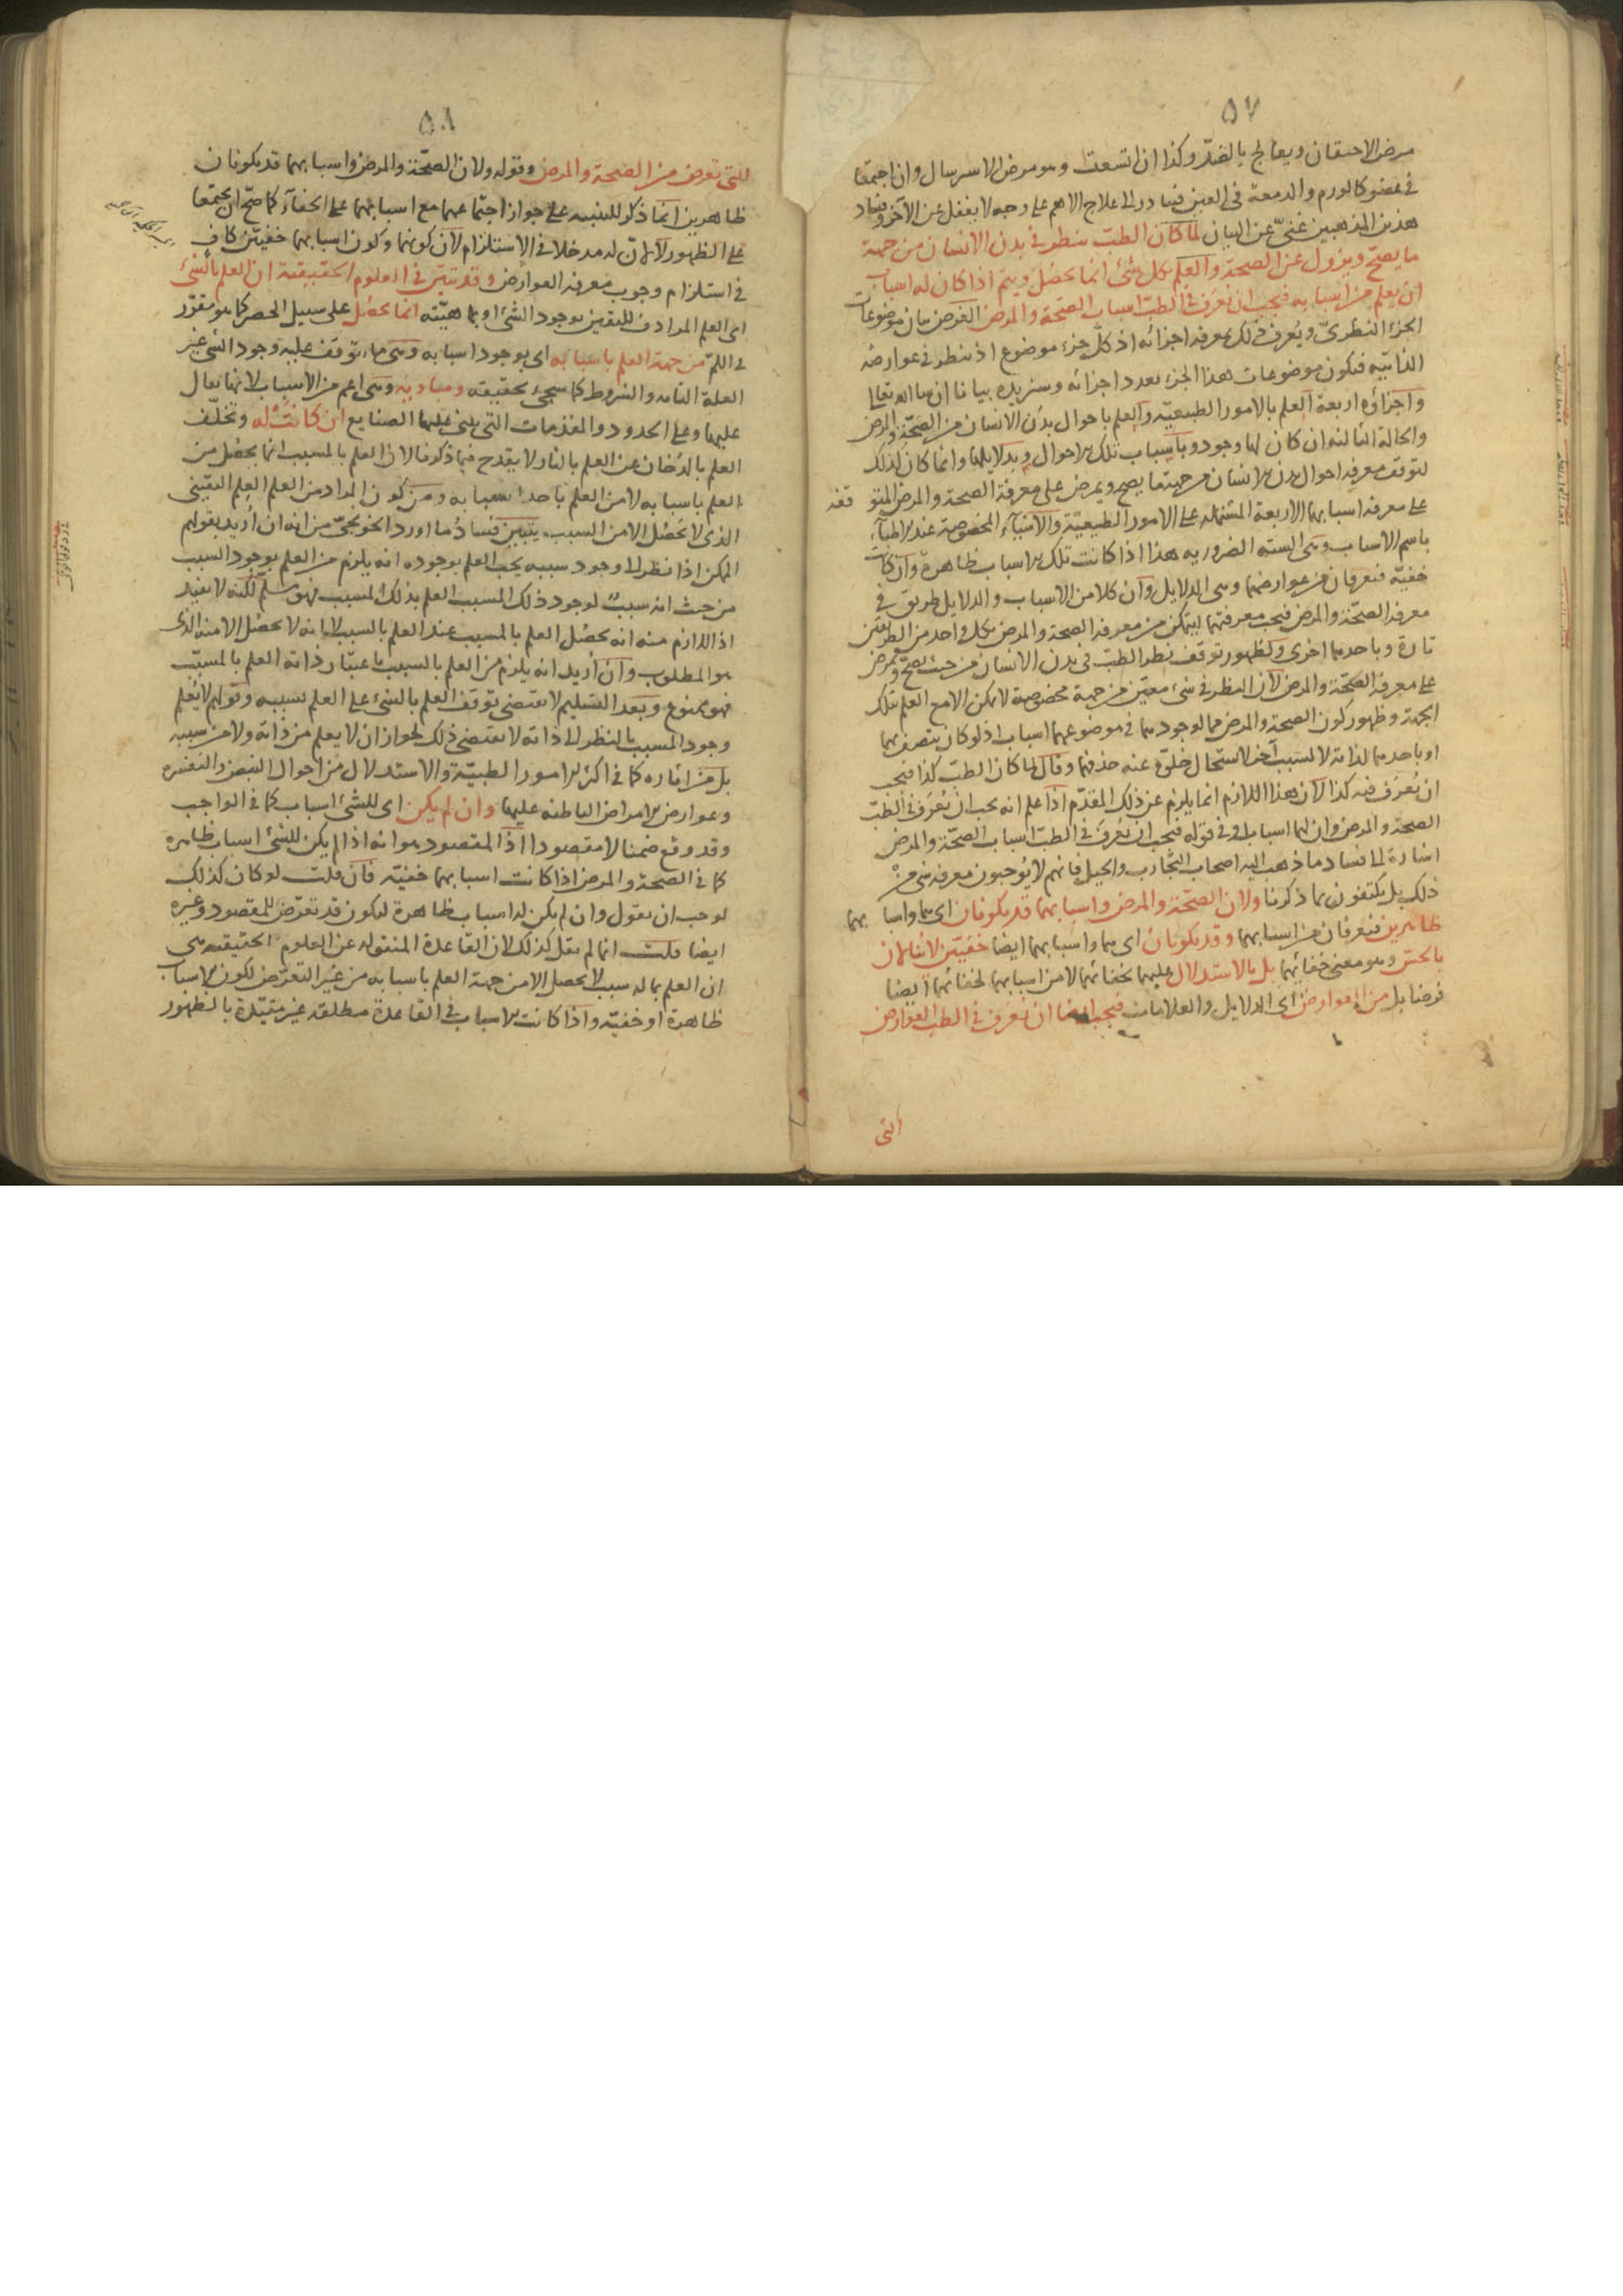 ٥٧
مرض الاحتقان ويعالج بالضد وكذا ان اتسعت وهو مرض الاسترسال وان اجتمعا
في عضو كالورم والدمعة في العين فبادر الى علاج الاهم على وجه لا يغفل عن الآخر وفساد
هذين المذهبين غنيّ عن البيان لما كان الطب ينظر في بدن الانسان من جهة
ما يصح ويزول عن الصحة والعلم بكل شئ انما يحصل ويتم اذا كان له اسباب
ان يعلم من اسبابه فيجب ان نعرف في الطب اسباب الصحة والمرض الغرض بيان موضوعات
الجزء النظري ويعرف ذلك بمعرفة اجزائه اذ كل جزء موضوع اذ ينظر في عوارضه
الذاتية فتكون موضوعات هذا الجزء بعدد اجزائه وسنزيده بيانا ان شاء الله تعالى
واجزاؤه اربعة العلم بالامور الطبيعية والعلم باحوال بدن الانسان من الصحة والمرض
والحالة الثالثة ان كان لها وجود وباسباب تلك الاحوال وبدلايلها وانما كان كذلك
لتوقف معرفة احوال بدن الانسان من جهة ما يصح ويمرض على معرفة الصحة والمرض المتوقفة
على معرفة اسبابهما الاربعة المشتملة على الامور الطبيعية والاشياء المخصوصة عند الاطباء
باسم الاسباب وهي الستة الضرورية هذا اذا كانت تلك الاسباب ظاهرة وان كانت
خفية فتعرفان من عوارضهما وهي الدلايل وان كلا من الاسباب والدلايل طريق في
معرفة الصحة والمرض فيجب معرفتهما ليتمكن من معرفة الصحة والمرض بكل واحد من الطريقين
تارة وباحدهما اخرى ولظهور توقف نظر الطب في بدن الانسان من حيث يصح ويمرض
على معرفة الصحة والمرض لان النظر في شئ معين من جهة مخصوصة لا يمكن الا مع العلم بتلك
الجهة وظهور كون الصحة والمرض مما لوجودهما في موضوعهما اسباب اذ لو كان يتصف بهما
او باحدهما لذاته لا لسبب آخر لاستحال خلوه عنه حذفهما وقال لما كان الطب كذا فيجب
ان نعرف فيه كذا لان هذا اللازم انما يلزم عن ذلك المقدم اذا علم انه يجب ان نعرف في الطب
الصحة والمرض وان لهما اسبابا وفي قوله فيجب ان نعرف في الطب اسباب الصحة والمرض
اشارة الى فساد ما ذهب اليه اصحاب التجارب والحيل فانهم لا يوجبون معرفة شئ من
ذلك بل يكتفون بما ذكرنا ولان الصحة والمرض واسبابهما قد يكونان اي هما واسبابهما
ظاهرين فتعرفان من اسبابهما وقد يكونان اي هما واسبابهما ايضا خفيين لا ينالان
بالحس وهو معنى خفائهما بل بالاستدلال عليهما لخفائهما لا من اسبابهما لخفائهما ايضا
فرضا بل من العوارض اي الدلايل والعلامات فيجب ايضا ان نعرف في الطب العوارض
التي
٥٨
التي تعرض من الصحة والمرض وقوله ولان الصحة والمرض واسبابهما قد يكونان
ظاهرين انما ذكر للتنبيه على جواز اجتماعهما مع اسبابهما على الخفاء كما صح ان يجتمعا
على الظهور لا لان له مدخلا في الاستلزام لان كونهما وكون اسبابهما خفيين كاف
في استلزام وجوب معرفة العوارض وقد تبين في العلوم الحقيقية ان العلم بالشئ
اي العلم المرادف لليقين بوجود الشئ او بماهيته انما يحصل على سبيل الحصر كما هو مقرر
في اللم من جهة العلم باسبابه اي بوجود اسبابه وهي ما يتوقف عليه وجود الشئ غير
العلة التامة والشروط كما سيجئ تحقيقه ومباديه وهي اعم من الاسباب لانها تقال
عليها وعلى الحدود والمقدمات التي يبنى عليها الصنايع ان كانت له وتخلف
العلم بالدخان عن العلم بالنار لا يقدح فيما ذكرنا لان العلم بالمسبب انما يحصل من
العلم باسبابه لا من العلم باحد اسبابه ومن كون المراد من العلم العلم اليقيني
الذي لا يحصل الا من السبب يتبين فساد ما اورد الخونجي من انه ان اريد بقولهم
الممكن اذا نظر الى وجود سببه يجب العلم بوجوده انه يلزم من العلم بوجود السبب
من حيث انه سبب لوجود ذلك المسبب العلم بذلك المسبب فهو مسلم لكنه لا يفيد
اذ اللازم منه انه يحصل العلم بالمسبب عند العلم بالسبب لا انه لا يحصل الا منه الذي
هو المطلوب وان اريد انه يلزم من العلم بالسبب باعتبار ذاته العلم بالمسبب
فهو ممنوع وبعد التسليم لا يقتضي توقف العلم بالشئ على العلم بسببه وقولهم لا يعلم
وجود المسبب بالنظر الى ذاته لا يقتضي ذلك لجواز ان لا يعلم من ذاته ولا من سببه
بل من اثاره كما في اكثر الامور الطبية والاستدلال من احوال النبض والتفسرة
وعوارض الامراض الباطنة عليها وان لم يكن اي للشئ اسباب كما في الواجب
وقد وقع ضمنا لا مقصودا اذ المقصود هو انه اذا لم يكن للشئ اسباب ظاهرة
كما في الصحة والمرض اذا كانت اسبابهما خفية فان قلت لو كان كذلك
لوجب ان يقول وان لم يكن له اسباب ظاهرة ليكون قد تعرض للمقصود وغيره
ايضا قلت انما لم يقل كذلك لان القاعدة المنقولة عن العلوم الحقيقية هي
ان العلم بما له سبب لا يحصل الا من جهة العلم باسبابه من غير التعرض لكون الاسباب
ظاهرة او خفية واذا كانت الاسباب في القاعدة مطلقة غير مقيدة بالظهور